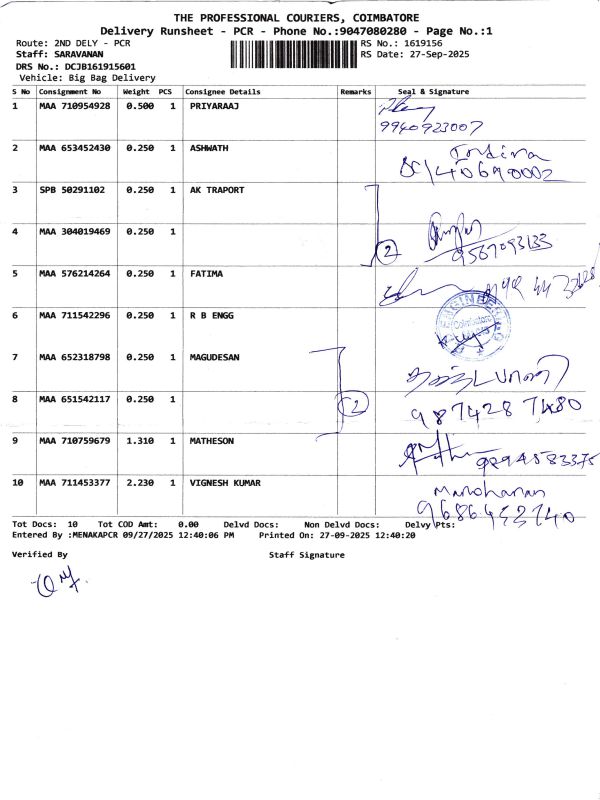 THE PROFESSIONAL COURIERS, COIMBATORE
Delivery Runsheet - PCR - Phone No.:9047080280 - Page No.:1
Route: 2ND DELY - PCR RS No.: 1619156
Staff: SARAVANAN RS Date: 27-Sep-2025
DRS No.: DCJB161915601
Vehicle: Big Bag Delivery
S No Consignment No Weight PCS Consignee Details Remarks Seal & Signature
1 MAA 710954928 0.500 1 PRIYARAAJ
9940923007
2 MAA 653452430 0.250 1 ASHWATH
3 SPB 50291102 0.250 1 AK TRAPORT
4 MAA 304019469 0.250 1 2 9567093133
5 MAA 576214264 0.250 1 FATIMA
6 MAA 711542296 0.250 1 R B ENGG
Coimbatore
7 MAA 652318798 0.250 1 MAGUDESAN
8 MAA 651542117 0.250 1 2 9874287480
9 MAA 710759679 1.310 1 MATHESON
9894583375
10 MAA 711453377 2.230 1 VIGNESH KUMAR Manoharan
Tot Docs: 10 Tot COD Amt: 0.00 Delvd Docs: Non Delvd Docs: Delvy Pts:
Entered By :MENAKAPCR 09/27/2025 12:40:06 PM Printed On: 27-09-2025 12:40:20
Verified By Staff Signature